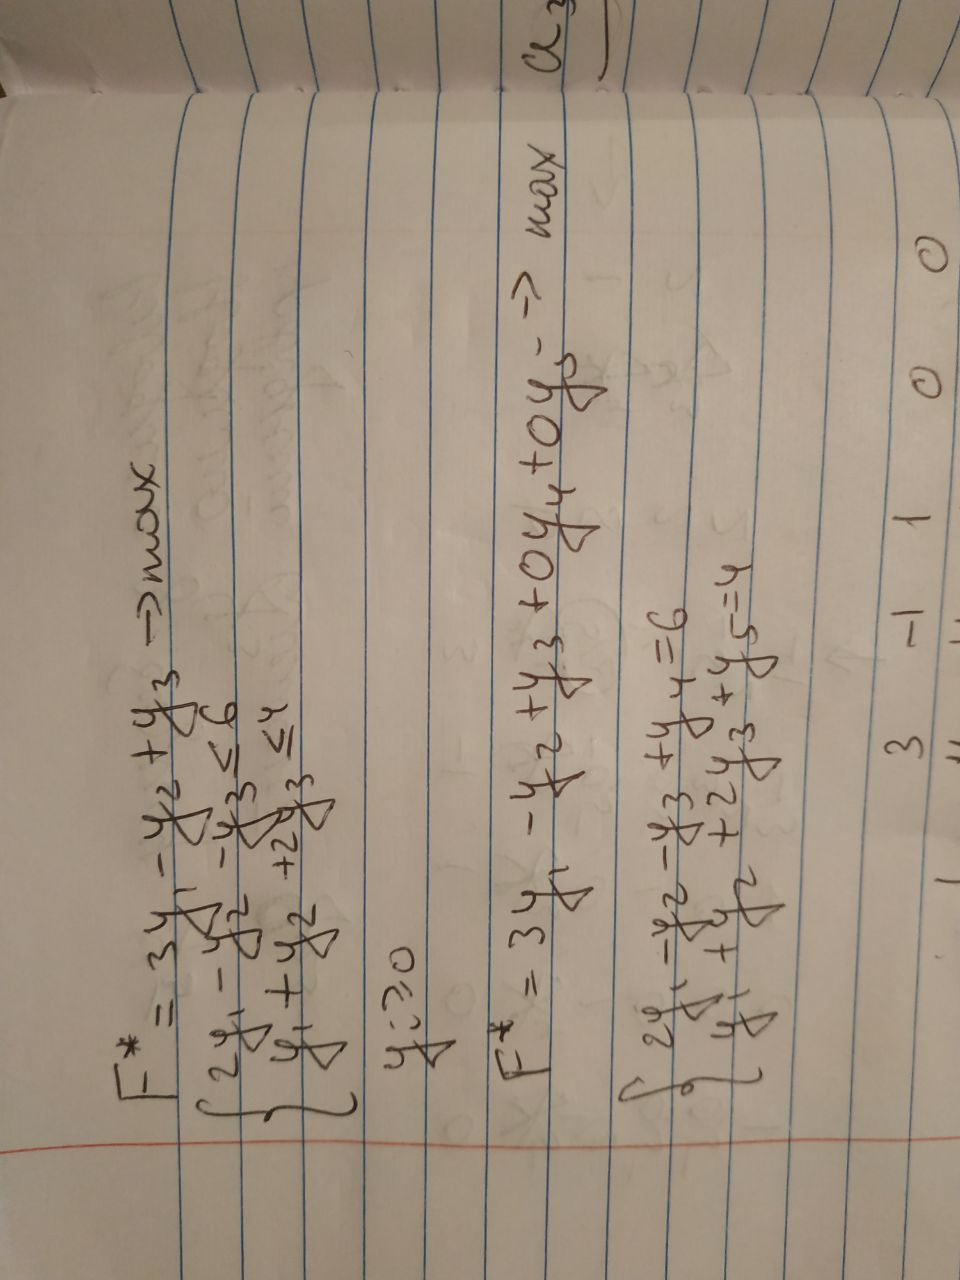 F* = 3y₁ - y₂ + y₃ → max
2y₁ - y₂ - y₃ ≤ 6
y₁ + y₂ + 2y₃ ≤ 4
yᵢ ≥ 0
F* = 3y₁ - y₂ + y₃ + 0y₄ + 0y₅ - → max
2y₁ - y₂ - y₃ + y₄ = 6
y₁ + y₂ + 2y₃ + y₅ = 4
3 -1 1 0 0